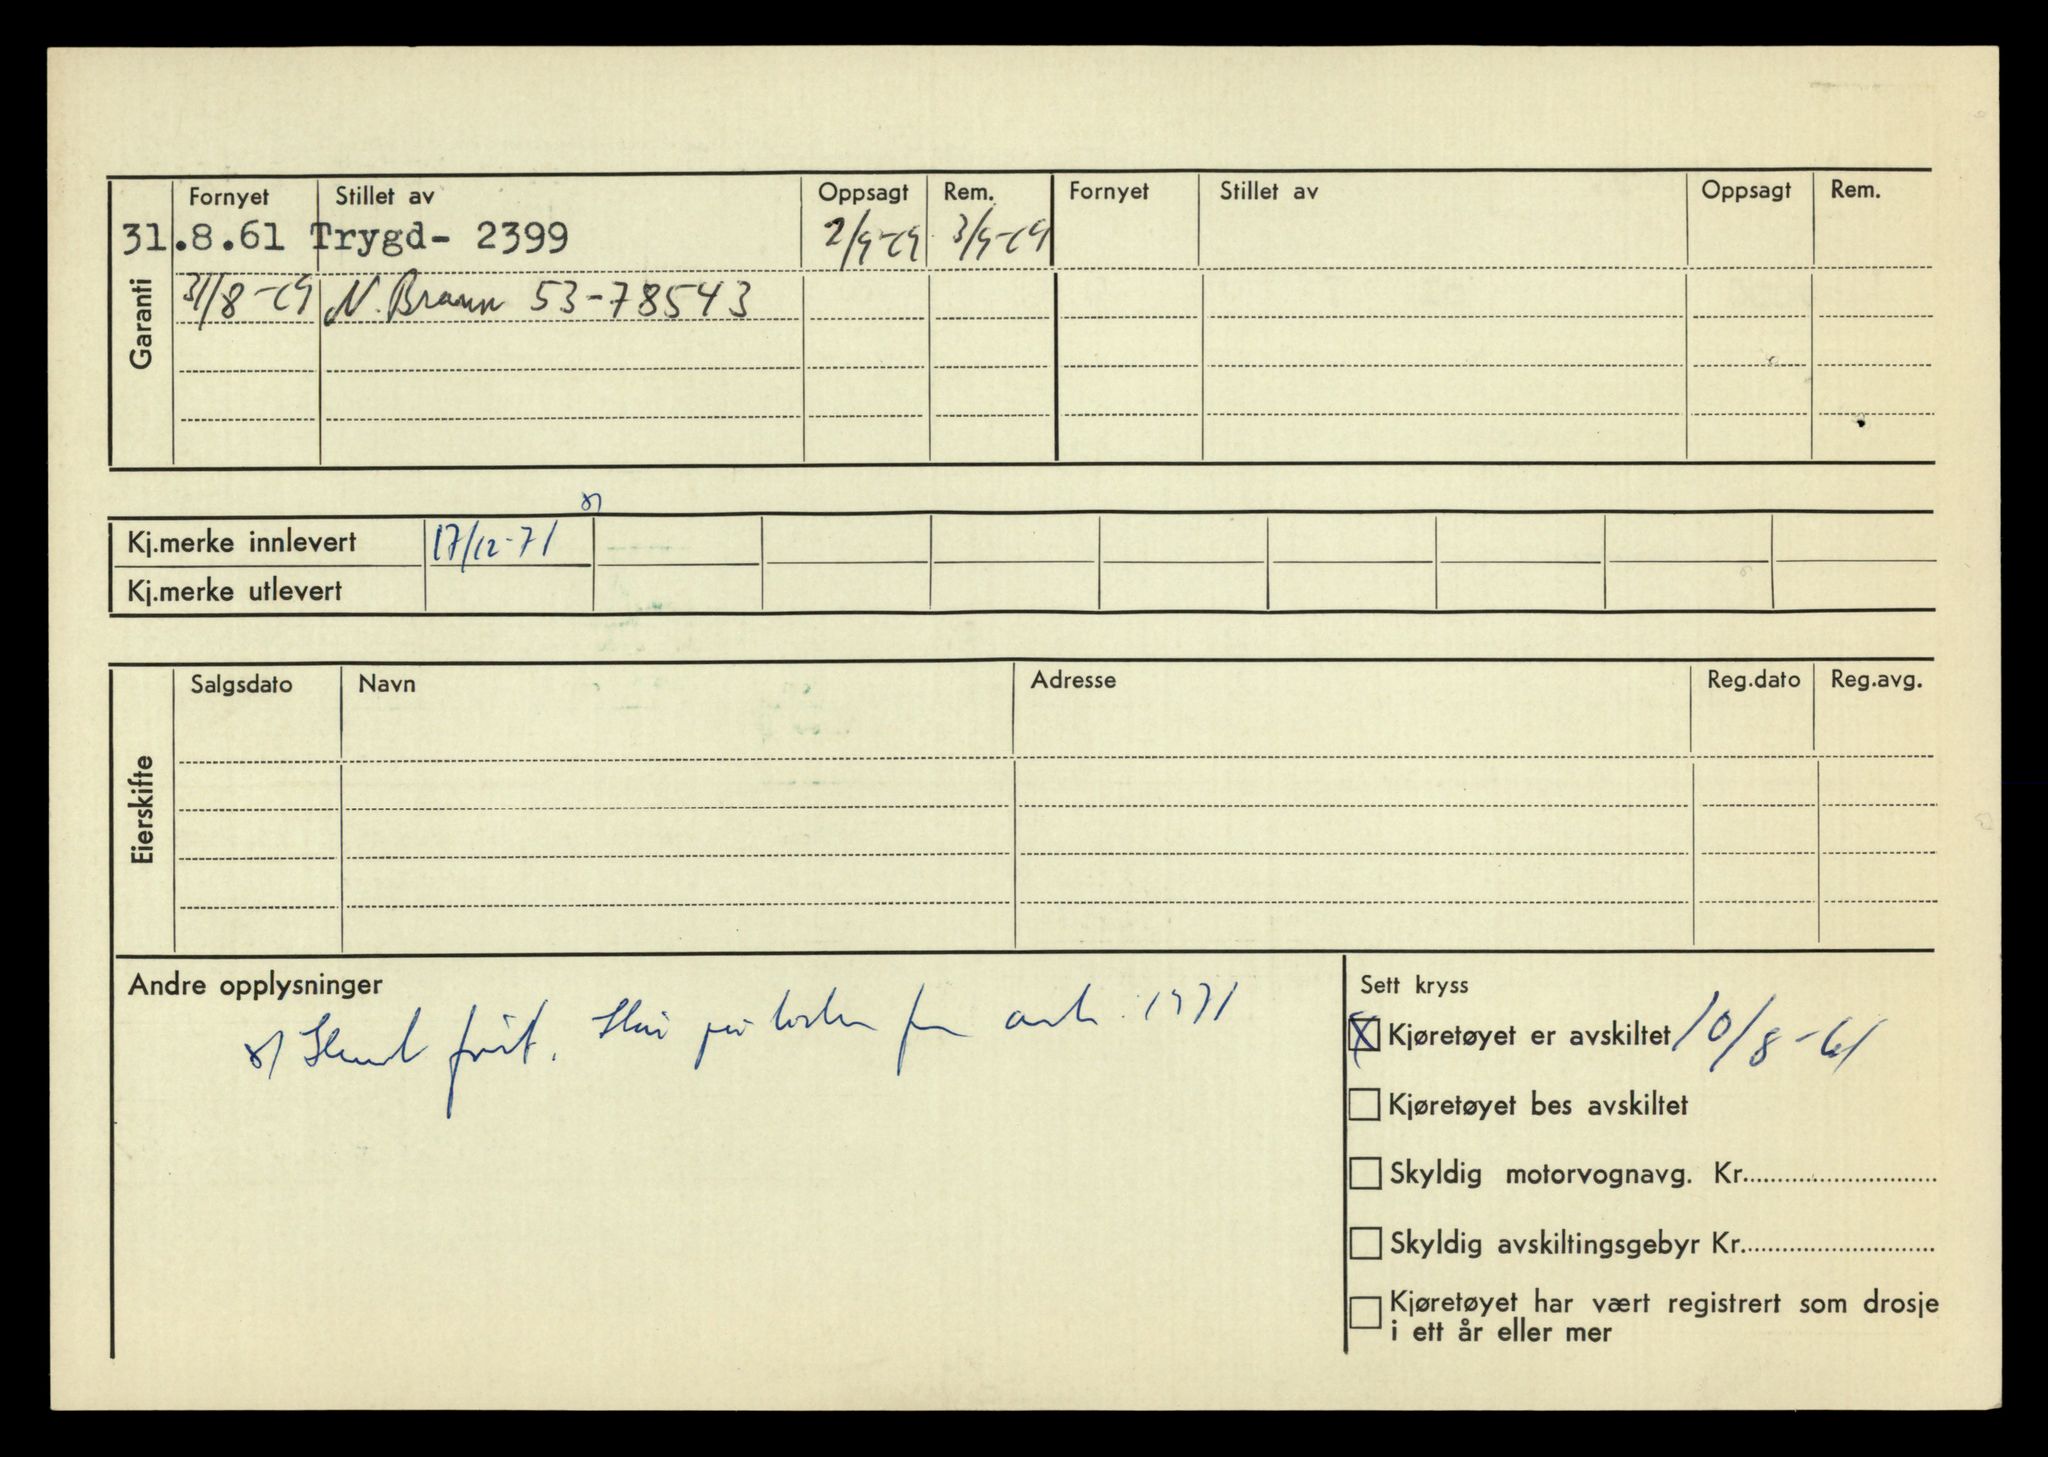 Fornyet Stillet av Oppsagt Rem. Fornyet Stillet av Oppsagt Rem.
31.8.61 Trygd- 2399 2/9-69 3/9-69
31/8-69 N. Brann 53-78543
Garanti
x)
Kj.merke innlevert 17/12-71
Kj.merke utlevert
Salgsdato Navn Adresse Reg.dato Reg.avg.
Eierskifte
Andre opplysninger
x) 1971
Sett kryss
X Kjøretøyet er avskiltet 10/8-61
Kjøretøyet bes avskiltet
Skyldig motorvognavg. Kr.
Skyldig avskiltingsgebyr Kr.
Kjøretøyet har vært registrert som drosje
i ett år eller mer